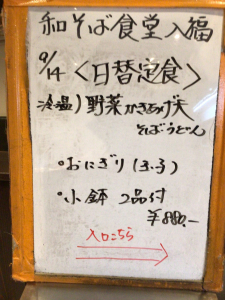 和そば食堂入福
9/14 <日替定食>
冷温)野菜かきあげ天
そば・うどん
•おにぎり(2ヶ)
•小鉢 2品付
¥880.-
入口こちら